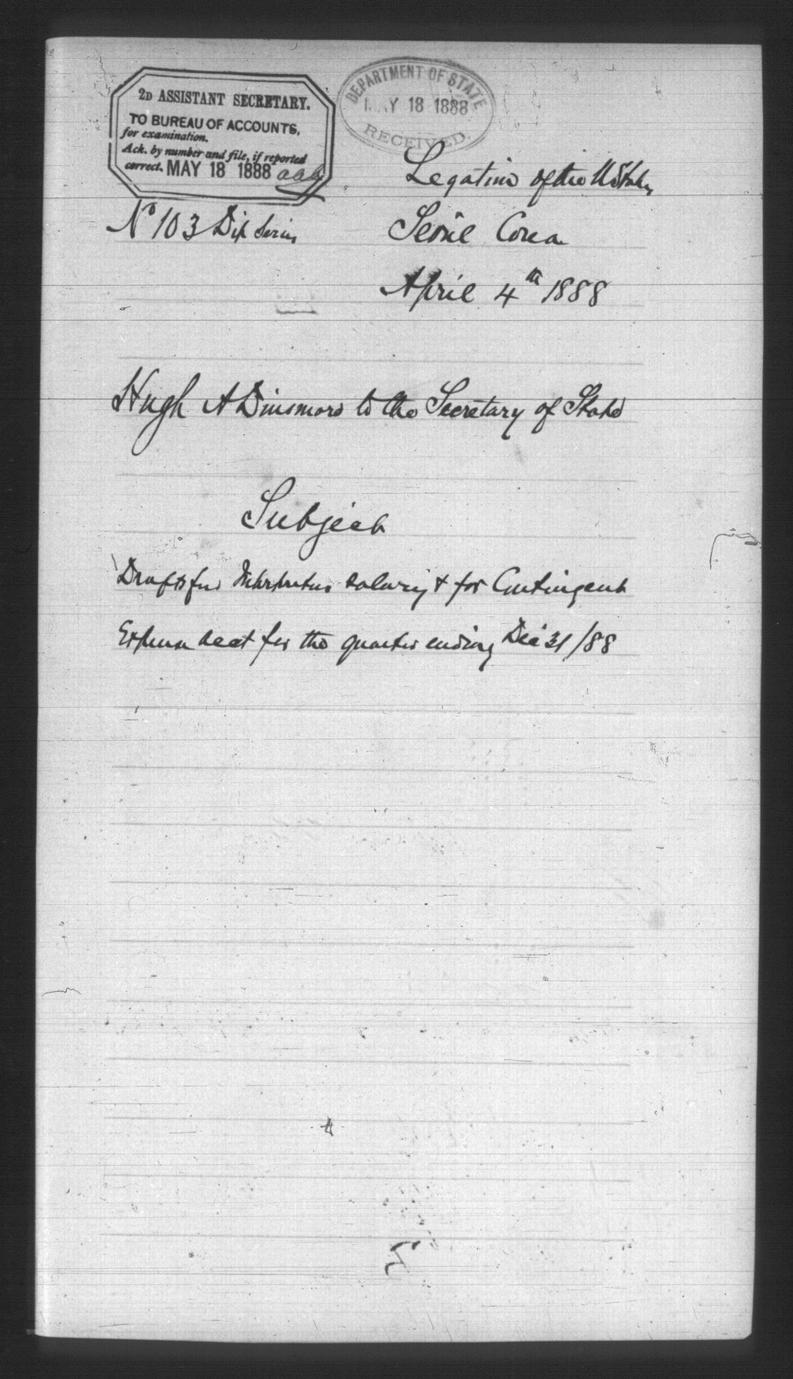 2D ASSISTANT SECRETARY.
TO BUREAU OF ACCOUNTS,
for examination.
Ack. by number and file, if reported
correct. MAY 18 1888 aaa
DEPARTMENT OF STATE
MAY 18 1888
RECEIVED.
Legation of the U States
No 103 Dip Series
Seoul Corea
April 4th 1888
Hugh A Dinsmore to the Secretary of State
Subject
Drafts for Interpreters salary & for Contingent
Expense acct for the quarter ending Dec 31/88